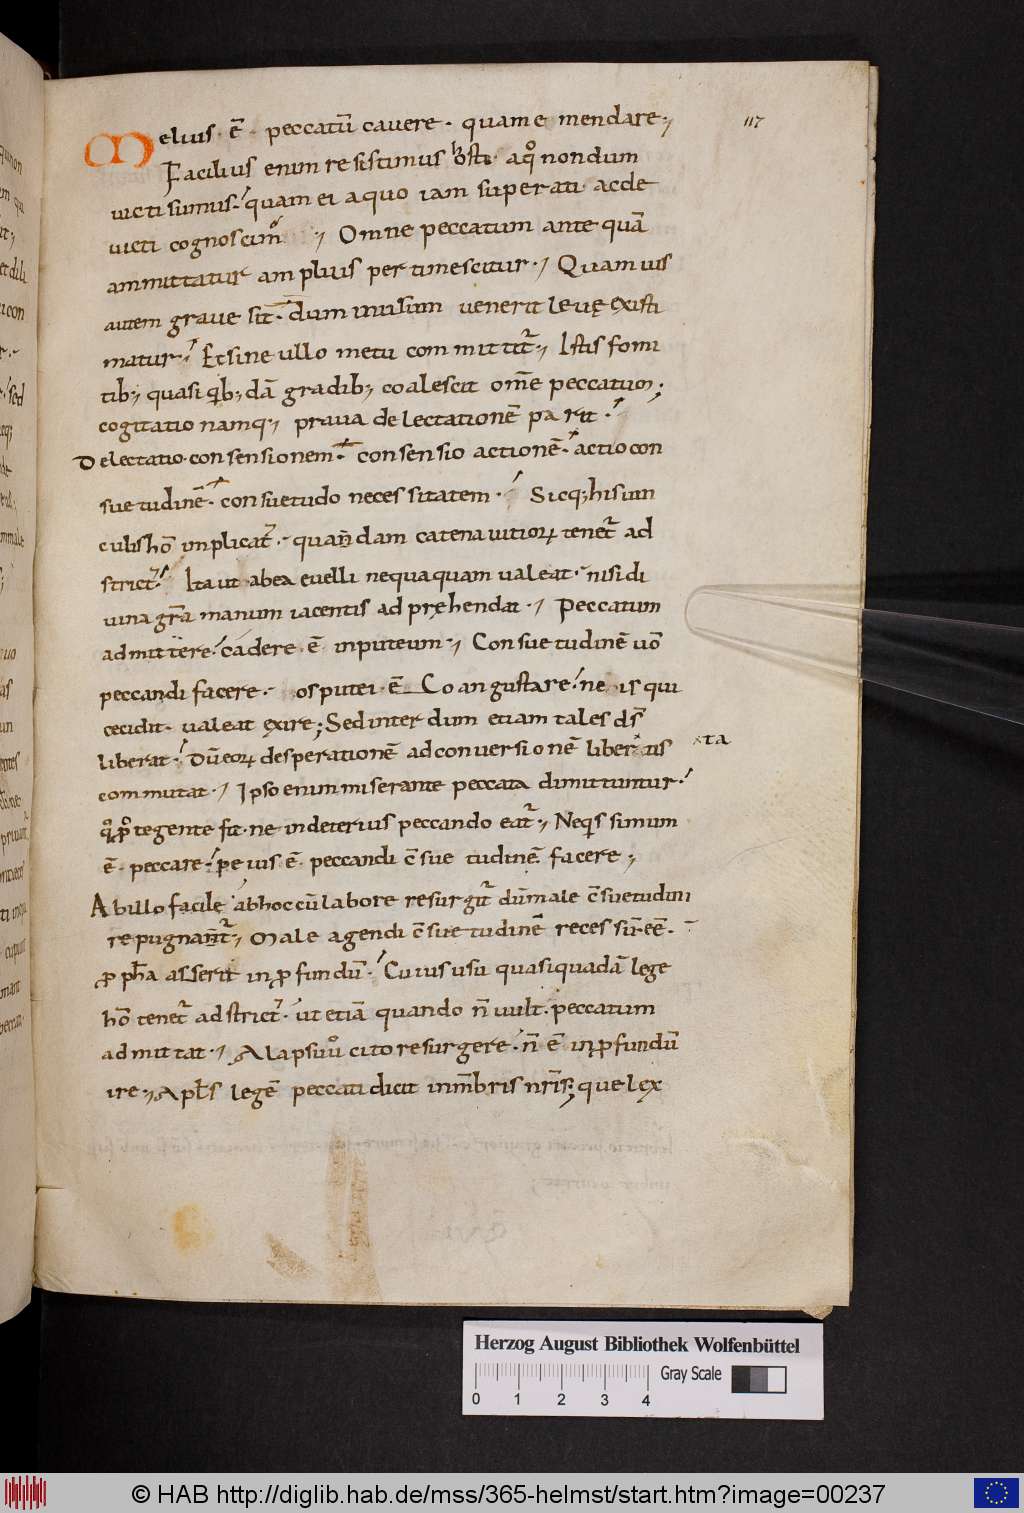 117
Melius · ē · peccatū cavere · quam emendare ;
Facilius enim resistimus hosti · aq̊ nondum
victi sumus · quam ei a quo iam superati · ac de
victi cognoscim᷒ ; Omne peccatum ante quā
ammittatur amplius pertimescitur · Quamvis
autem grave sit · dum in usum venerit levę existi
matur · Et sine ullo metu committit᷑ ; Istis fomi
tib; quasi qib; dā gradib; coalescit om̄e peccatum ;
cogitatio namq; prava delectationē parit ·
Delectatio · consensionem · consensio actionē · actio con
suetudinē · consuetudo necessitatem · Sicq; his vin
culis hō implicat᷑ · quadam catena vitioꝝ tenet᷑ ad
strict᷒ · Ita ut ab ea evelli nequaquam valeat · nisi di
vina gr̄a manum iacentis adpręhendat · Peccatum
admittere · cadere · ē · in puteum · Consuetudinē vō
peccandi facere · os putei · ē Coangustare · ne is qui
cecidit · valeat exire ; Sed interdum etiam tales d̄s
liberat · Dū eoꝝ desperationē ad conversionē libertatis
ta
commutat · Ipso enim miserante peccata dimittuntur ·
q̊ ꝓtegente fit · ne in deterius peccando eat᷑ ; Neqis simum
ē · peccare · peius ē · peccandi c̄suetudinē facere ;
Ab illo facile ab hoc cū labore resurgit᷑ dū male c̄suetudini
repugnat᷑ ; Male agendi c̄suetudinē recessū eē ·
ꝓpha asserit in ꝓfundū · Cuius usu quasi quadā lege
hō tenet᷑ adstrict᷒ · ut etiā quando n̄ vult · peccatum
admittat · A lapsu ů cito resurgere · n̄ ē in ꝓfundū
ire ; Apl̄s legē peccati dicit in mēbris nr̄is ; que lex
Herzog August Bibliothek Wolfenbüttel
Gray Scale
0 1 2 3 4
© HAB http://diglib.hab.de/mss/365-helmst/start.htm?image=00237